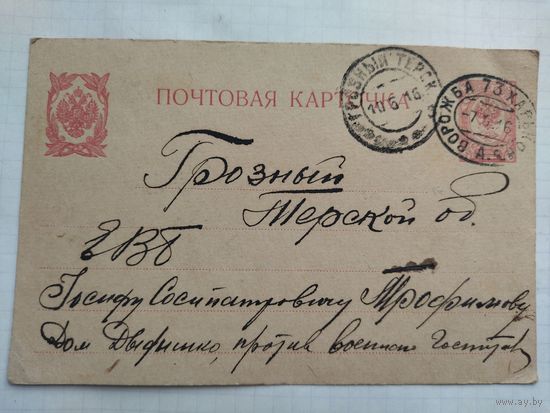 ПОЧТОВАЯ КАРТОЧКА
ГРОЗНЫЙ ТЕРСК
10 6 16
ВОРОЖБА 73 ХАРЬКОВ
Грозный
Терской об.
ЕВБ
Іосифу Сосипатровичу Трофимову
Дом Дыдышко, против военного Госпиталя
www.ay.by